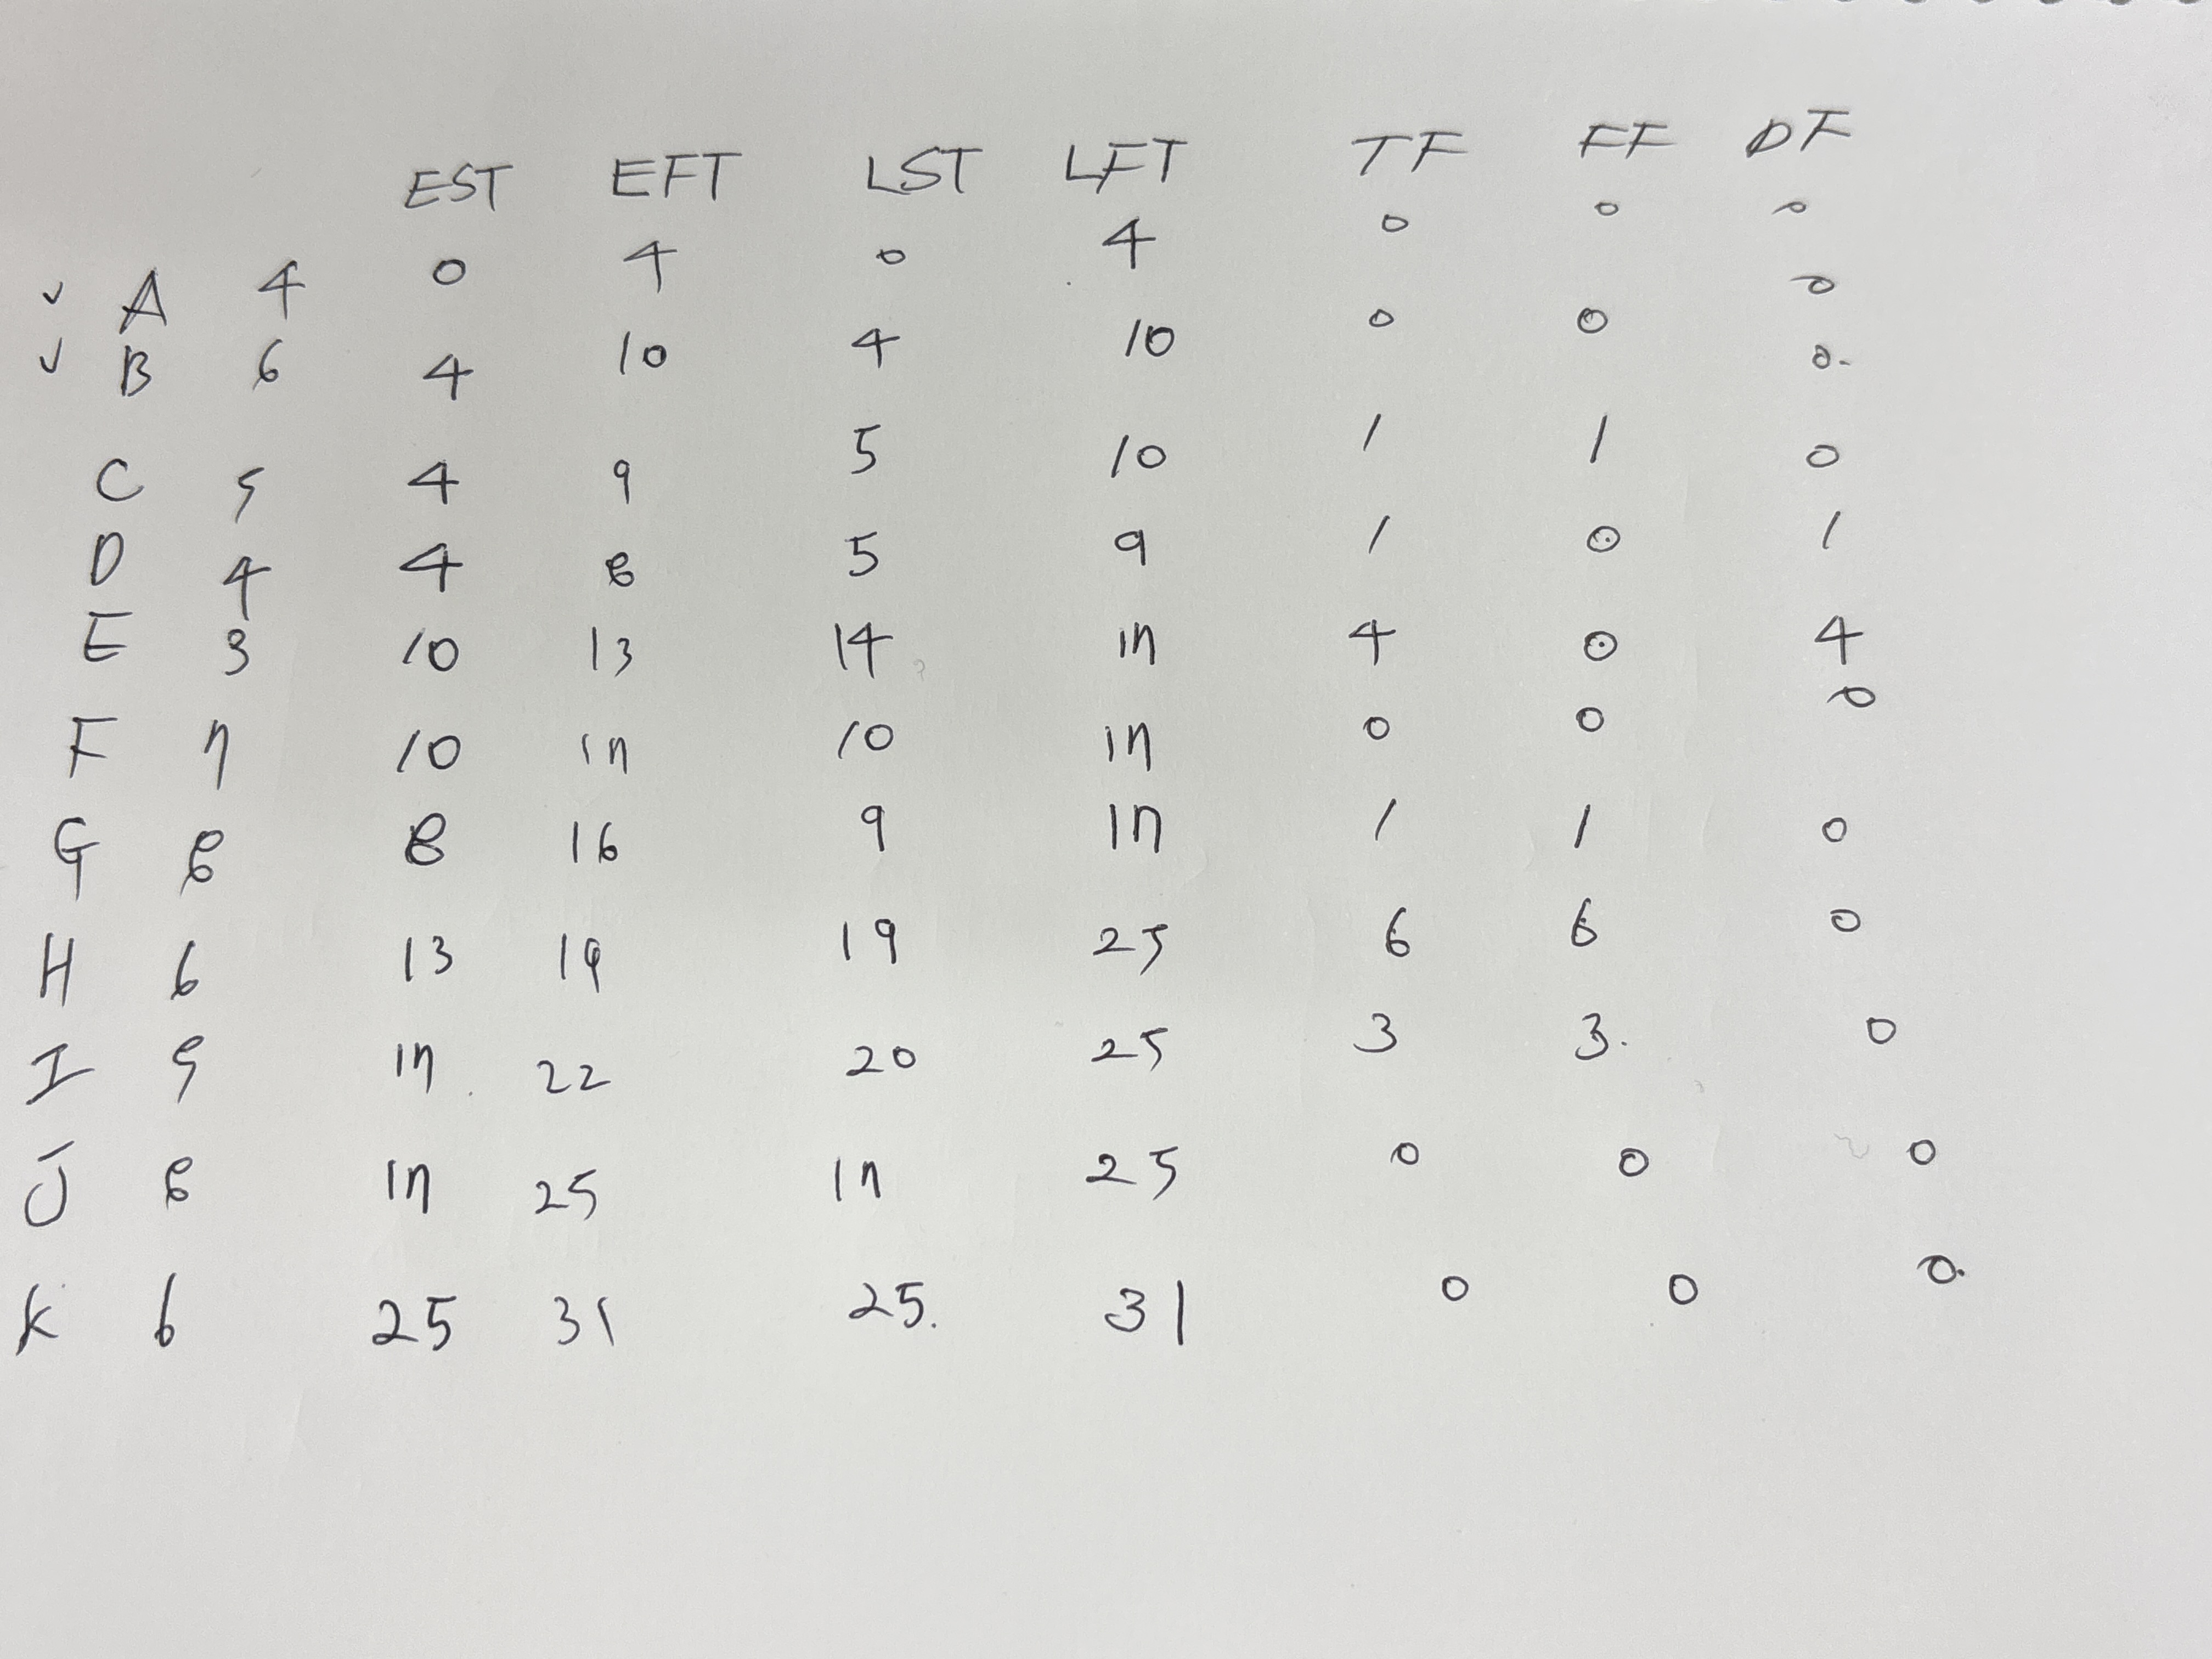 EST EFT LST LFT TF FF DF
✓ A 4 0 4 0 4 0 0 0
✓ B 6 4 10 4 10 0 0 0
0.
C 5 4 9 5 10 1 1 0
D 4 4 8 5 9 1 0 1
E 3 10 13 14 17 4 0 4
F 7 10 17 10 17 0 0 0
G 8 8 16 9 17 1 1 0
H 6 13 19 19 25 6 6 0
I 5 17 22 20 25 3 3. 0
J 8 17 25 17 25 0 0 0
K 6 25 31 25. 31 0 0 0.